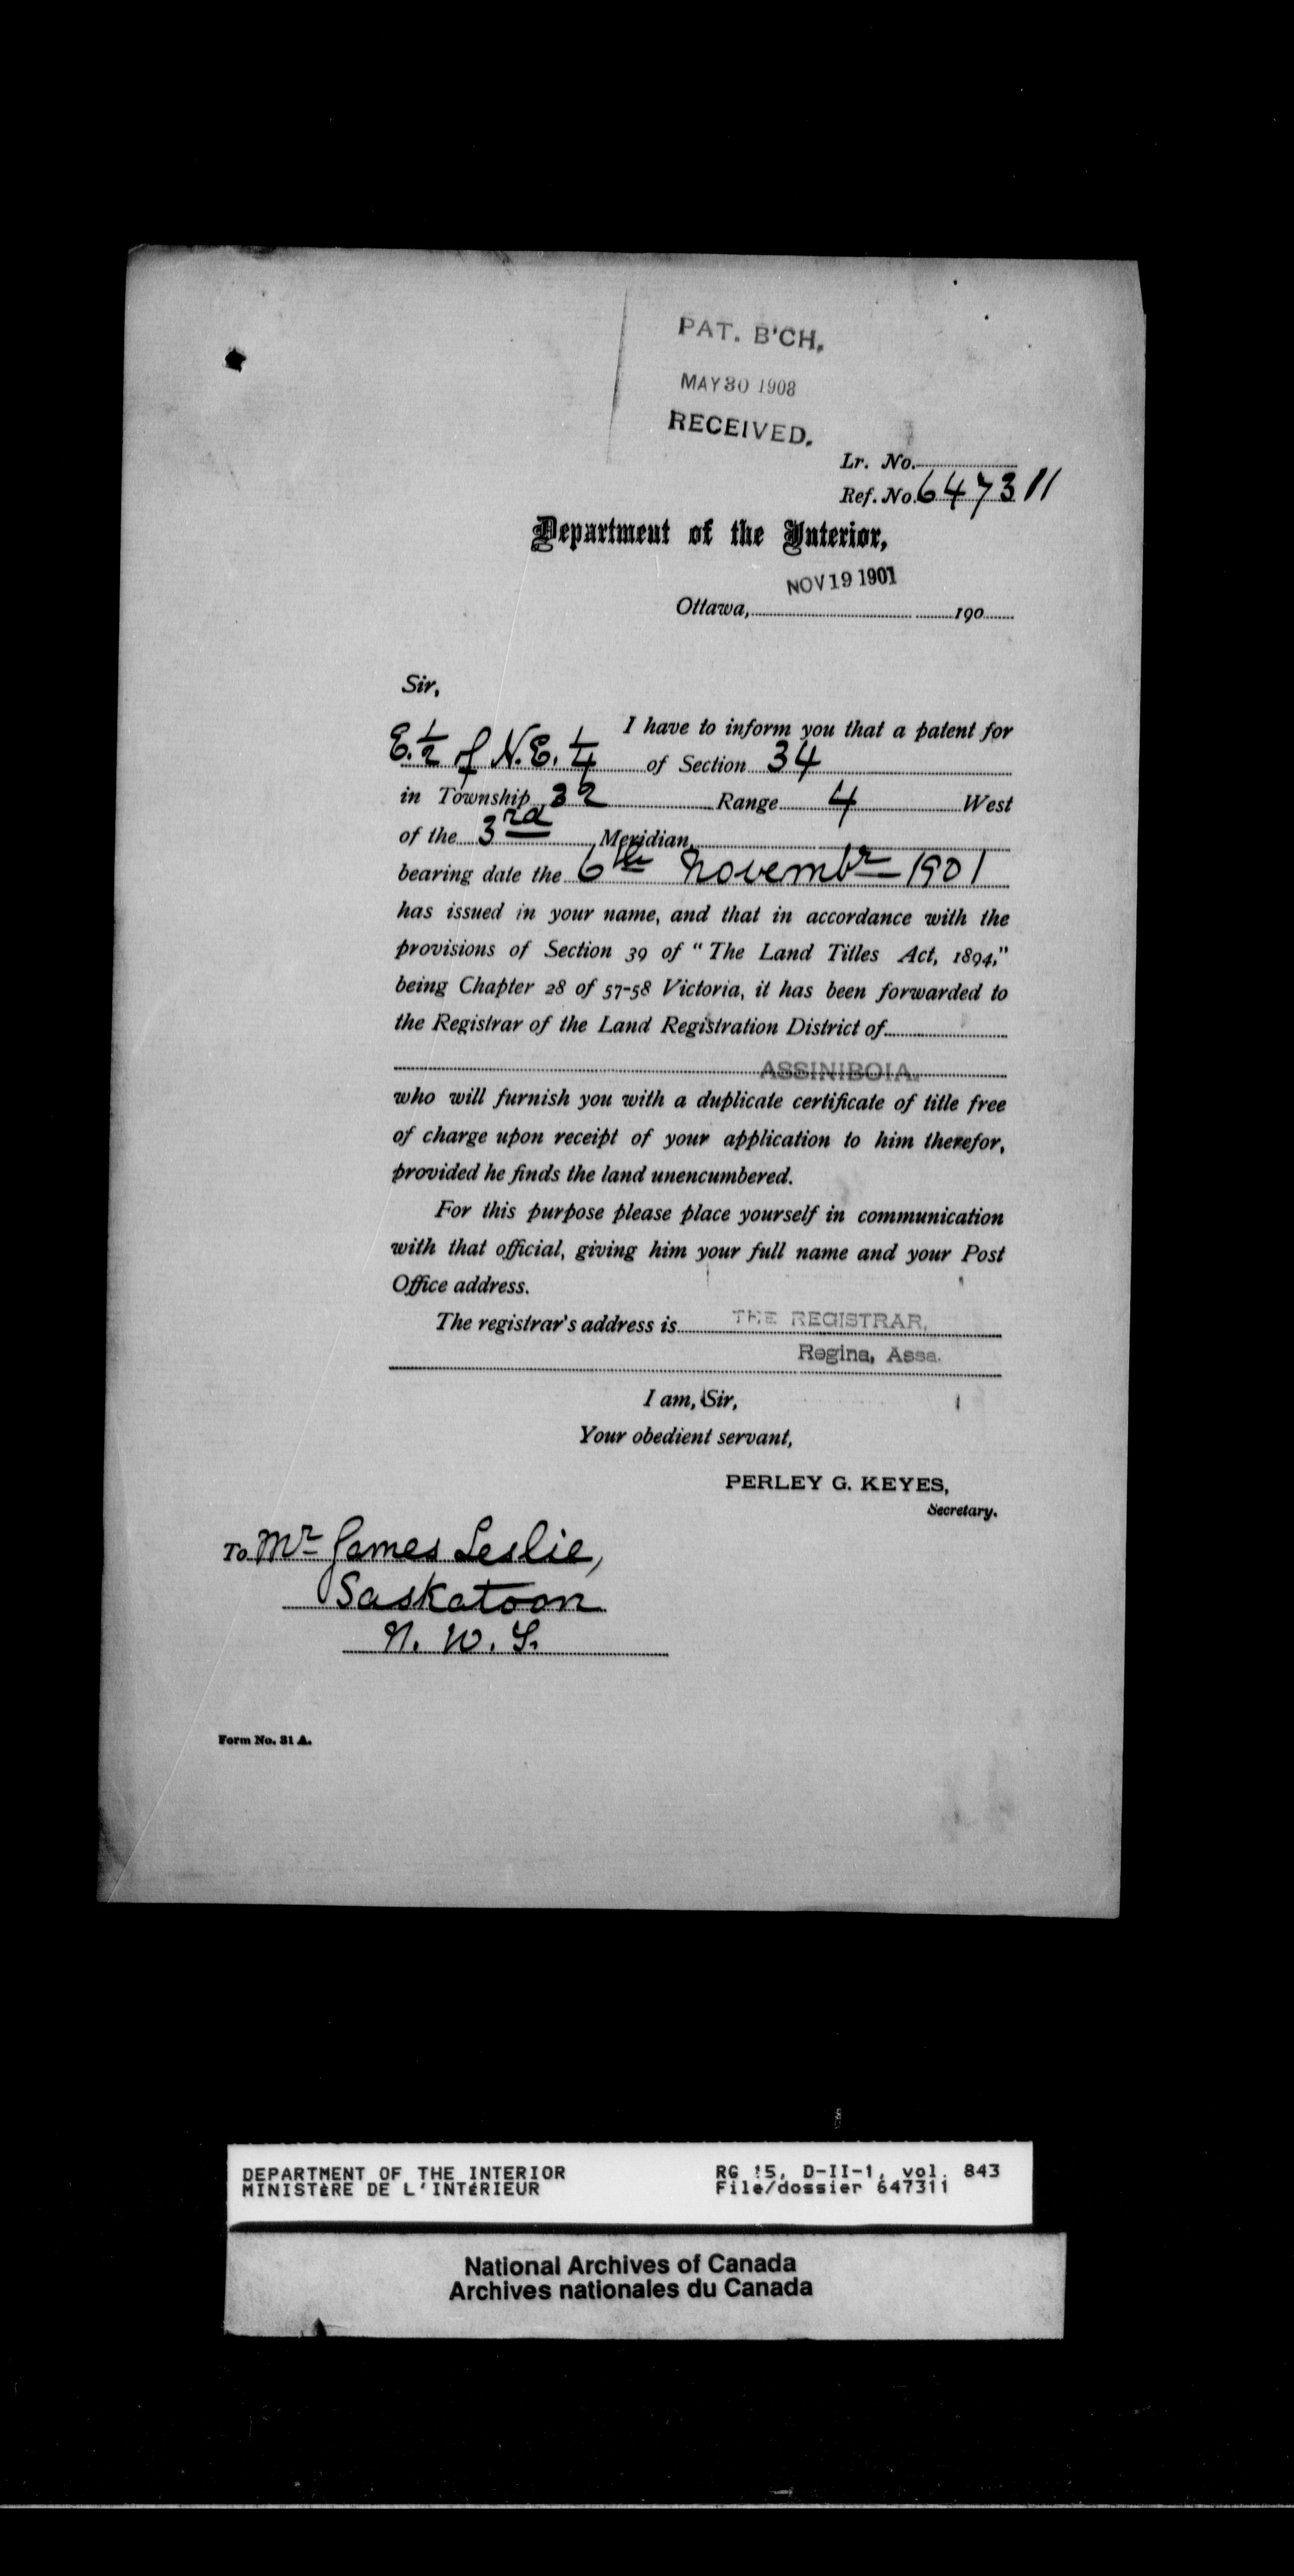 PAT. B'CH.
MAY 30 1908
RECEIVED.
Lr. No.
Ref. No. 647311
Department of the Interior,
NOV 19 1901
Ottawa, 190
Sir,
I have to inform you that a patent for
E. ½ of N.E. ¼ of Section 34
in Township 32 Range 4 West
of the 3rd Meridian,
bearing date the 6th Novembr 1901
has issued in your name, and that in accordance with the
provisions of Section 39 of "The Land Titles Act, 1894,"
being Chapter 28 of 57-58 Victoria, it has been forwarded to
the Registrar of the Land Registration District of
ASSINIBOIA.
who will furnish you with a duplicate certificate of title free
of charge upon receipt of your application to him therefor,
provided he finds the land unencumbered.
For this purpose please place yourself in communication
with that official, giving him your full name and your Post
Office address.
The registrar's address is THE REGISTRAR,
Regina, Assa.
I am, Sir,
Your obedient servant,
PERLEY G. KEYES,
Secretary.
To Mr James Leslie,
Saskatoon
N. W. T.
Form No. 31 A.
DEPARTMENT OF THE INTERIOR RG 15, D-II-1, vol. 843
MINISTÈRE DE L'INTÉRIEUR File/dossier 647311
National Archives of Canada
Archives nationales du Canada